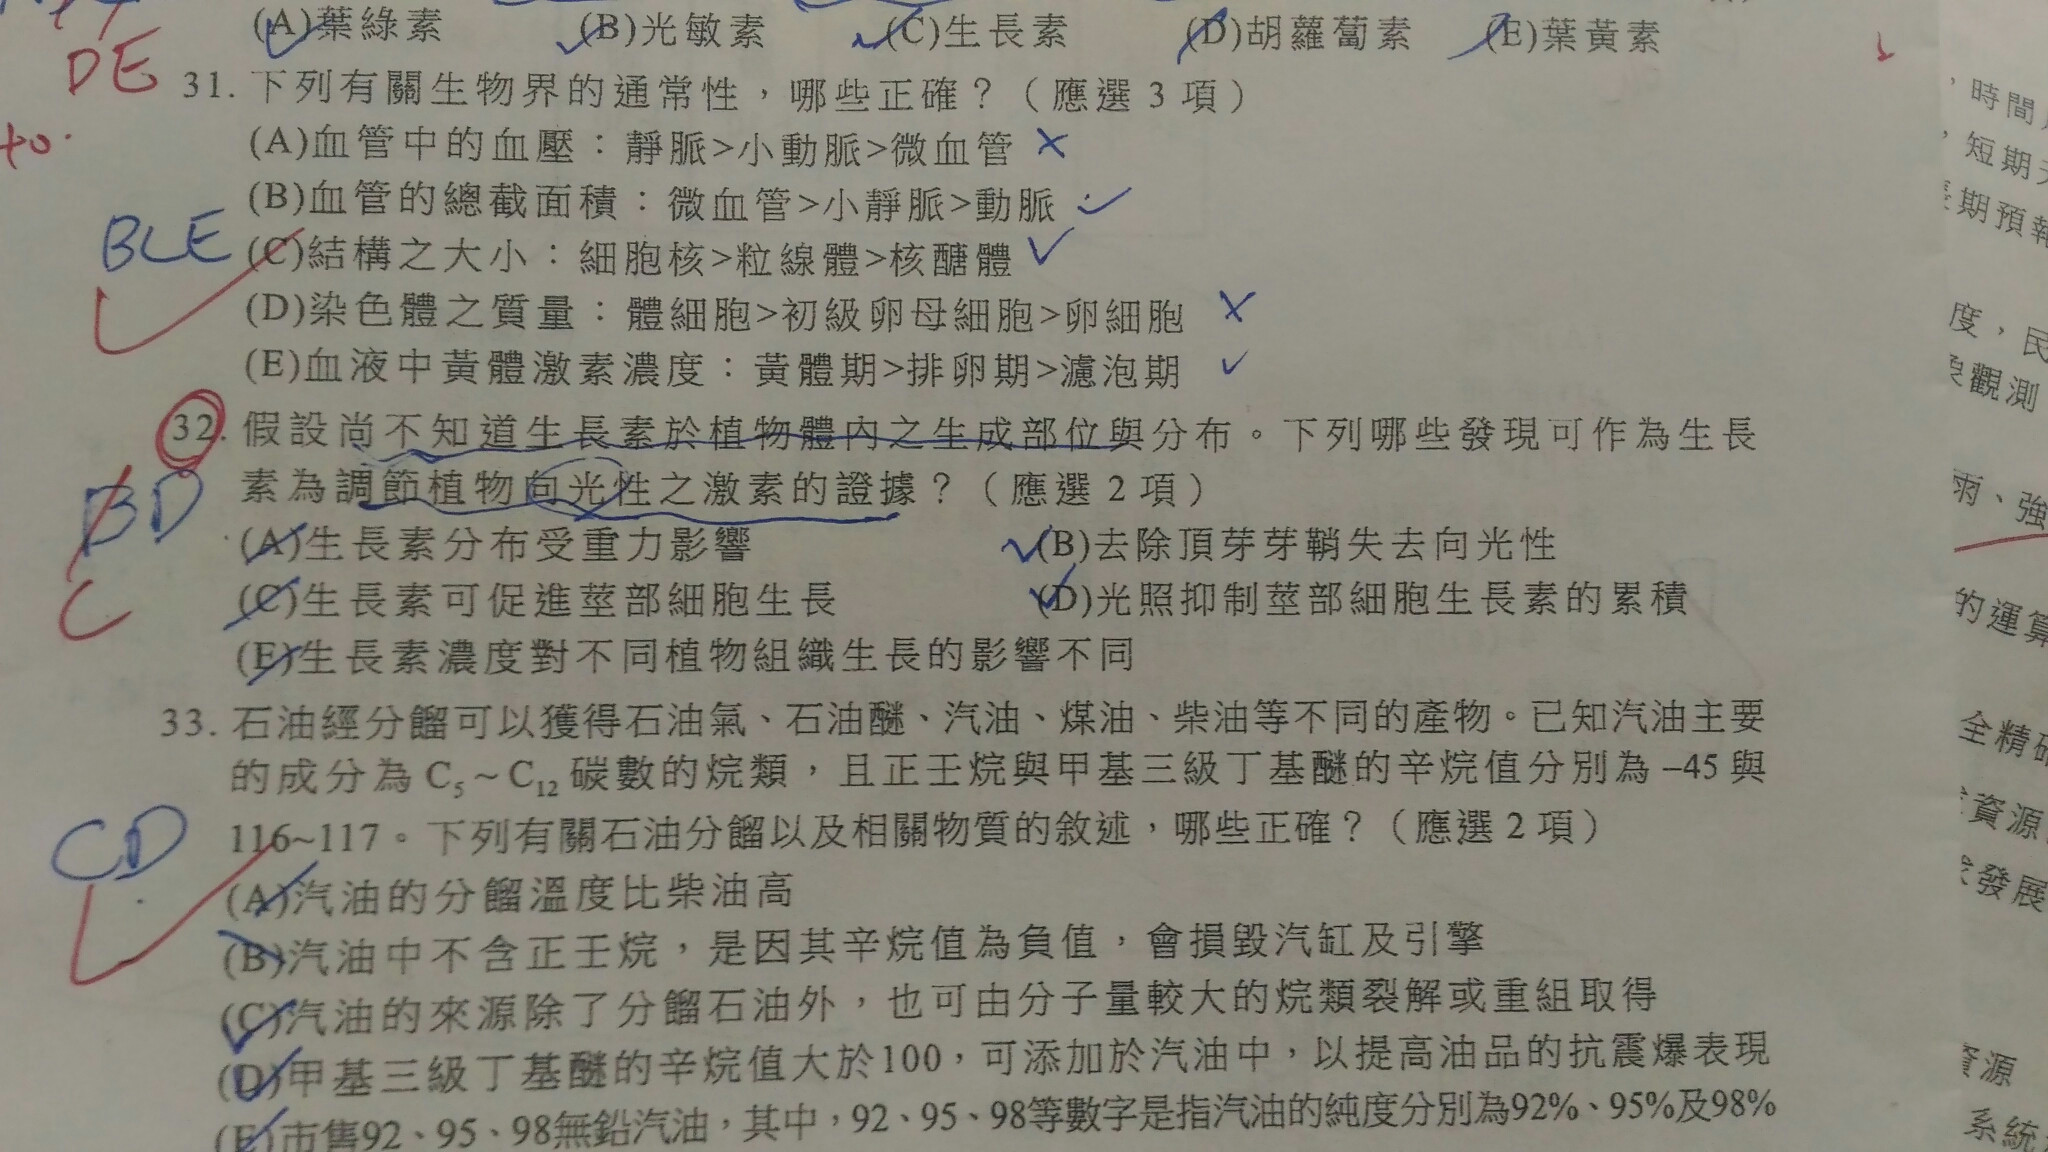 (A)葉綠素 (B)光敏素 (C)生長素 (D)胡蘿蔔素 (E)葉黃素
DE
31. 下列有關生物界的通常性，哪些正確？（應選3項）
(A)血管中的血壓：靜脈>小動脈>微血管
(B)血管的總截面積：微血管>小靜脈>動脈
BCE
(C)結構之大小：細胞核>粒線體>核醣體
(D)染色體之質量：體細胞>初級卵母細胞>卵細胞
(E)血液中黃體激素濃度：黃體期>排卵期>濾泡期
32. 假設尚不知道生長素於植物體內之生成部位與分布。下列哪些發現可作為生長
素為調節植物向光性之激素的證據？（應選2項）
BD
C
(A)生長素分布受重力影響 (B)去除頂芽芽鞘失去向光性
(C)生長素可促進莖部細胞生長 (D)光照抑制莖部細胞生長素的累積
(E)生長素濃度對不同植物組織生長的影響不同
33. 石油經分餾可以獲得石油氣、石油醚、汽油、煤油、柴油等不同的產物。已知汽油主要
的成分為C5~C12碳數的烷類，且正壬烷與甲基三級丁基醚的辛烷值分別為–45與
116~117。下列有關石油分餾以及相關物質的敘述，哪些正確？（應選2項）
CD
(A)汽油的分餾溫度比柴油高
(B)汽油中不含正壬烷，是因其辛烷值為負值，會損毀汽缸及引擎
(C)汽油的來源除了分餾石油外，也可由分子量較大的烷類裂解或重組取得
(D)甲基三級丁基醚的辛烷值大於100，可添加於汽油中，以提高油品的抗震爆表現
(E)市售92、95、98無鉛汽油，其中，92、95、98等數字是指汽油的純度分別為92%、95%及98%
，時間
，短期
期預報
度，民
觀測
雨、強
的運算
全精
資源
發展
資源
系統